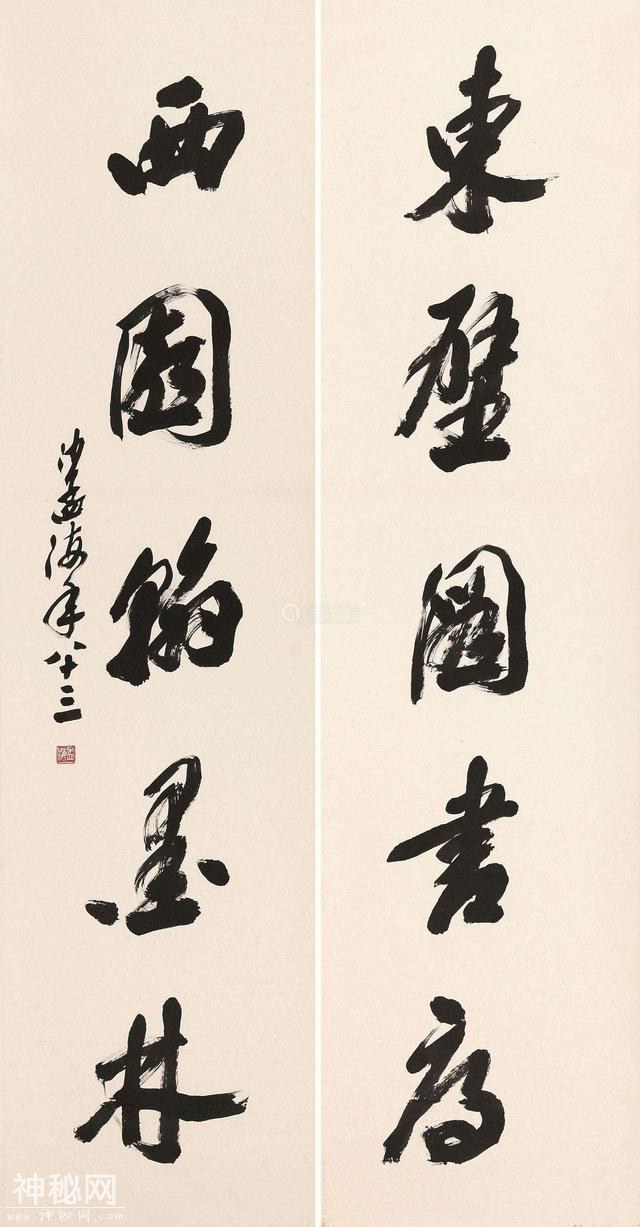 東壁圖書府
西園翰墨林
沙孟海年八十三
神秘网